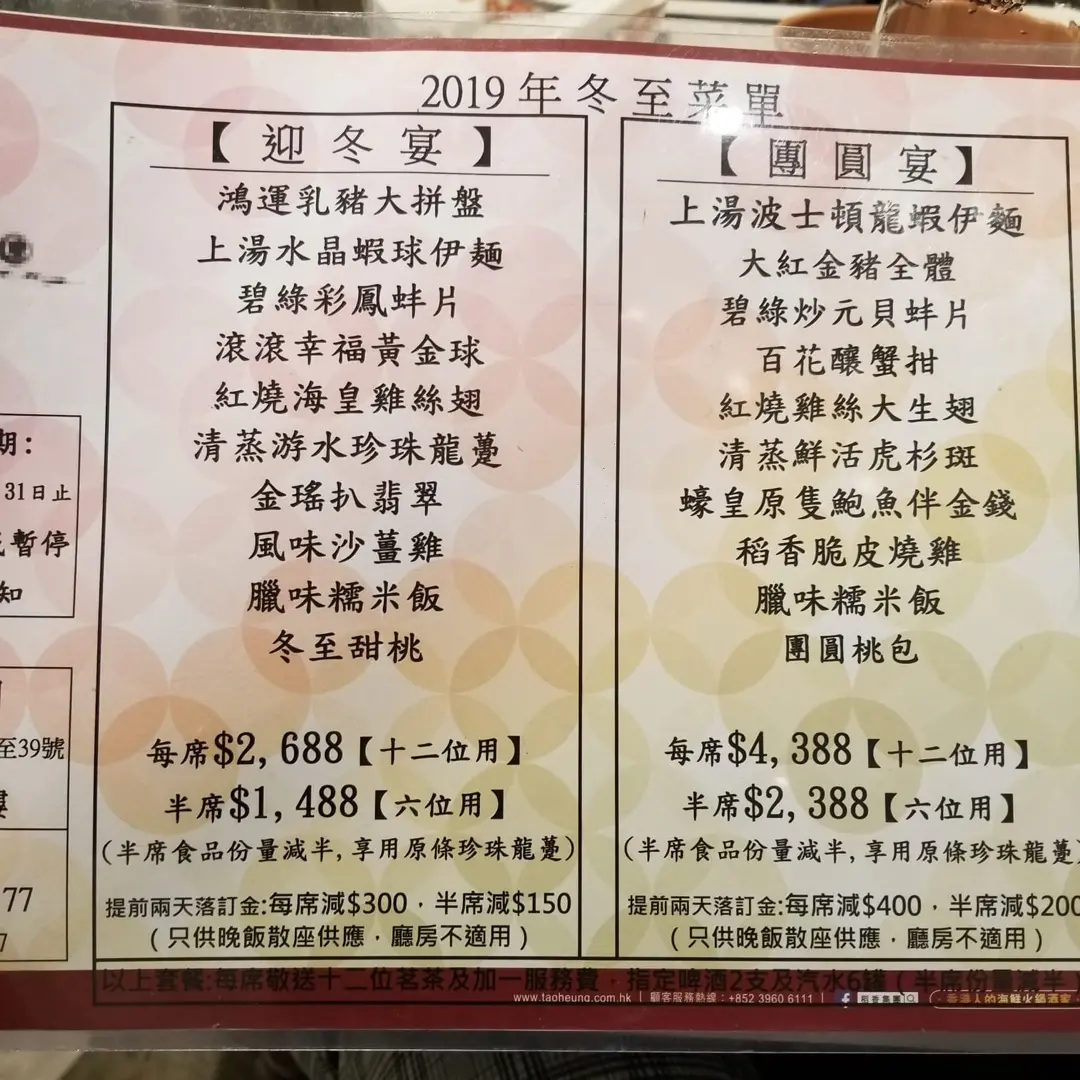 2019年冬至菜單
【迎冬宴】
鴻運乳豬大拼盤
上湯水晶蝦球伊麵
碧綠彩鳳蚌片
滾滾幸福黃金球
紅燒海皇雞絲翅
清蒸游水珍珠龍躉
金瑤扒翡翠
風味沙薑雞
臘味糯米飯
冬至甜桃
每席$2,688【十二位用】
半席$1,488【六位用】
(半席食品份量減半,享用原條珍珠龍躉)
提前兩天落訂金:每席減$300，半席減$150
(只供晚飯散座供應，廳房不適用)
【團圓宴】
上湯波士頓龍蝦伊麵
大紅金豬全體
碧綠炒元貝蚌片
百花釀蟹拑
紅燒雞絲大生翅
清蒸鮮活虎杉斑
蠔皇原隻鮑魚伴金錢
稻香脆皮燒雞
臘味糯米飯
團圓桃包
每席$4,388【十二位用】
半席$2,388【六位用】
(半席食品份量減半,享用原條珍珠龍躉)
提前兩天落訂金:每席減$400，半席減$200
(只供晚飯散座供應，廳房不適用)
期:
31日止
暫停
知
至39號
樓
77
7
以上套餐:每席敬送十二位茗茶及加一服務費，指定啤酒2支及汽水6罐(半席份量減半
www.taoheung.com.hk | 顧客服務熱線：+852 3960 6111 | f 稻香集團
香港人的海鮮火鍋酒家